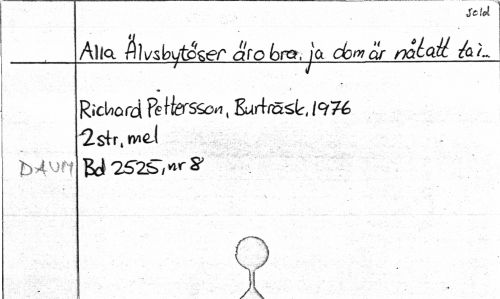 sold
Alla Älvsbytöser äro bra, ja dom är nåt att ta i...
Richard Pettersson, Burträsk, 1976
2 str, mel
DAUM Bd 2525, nr 8